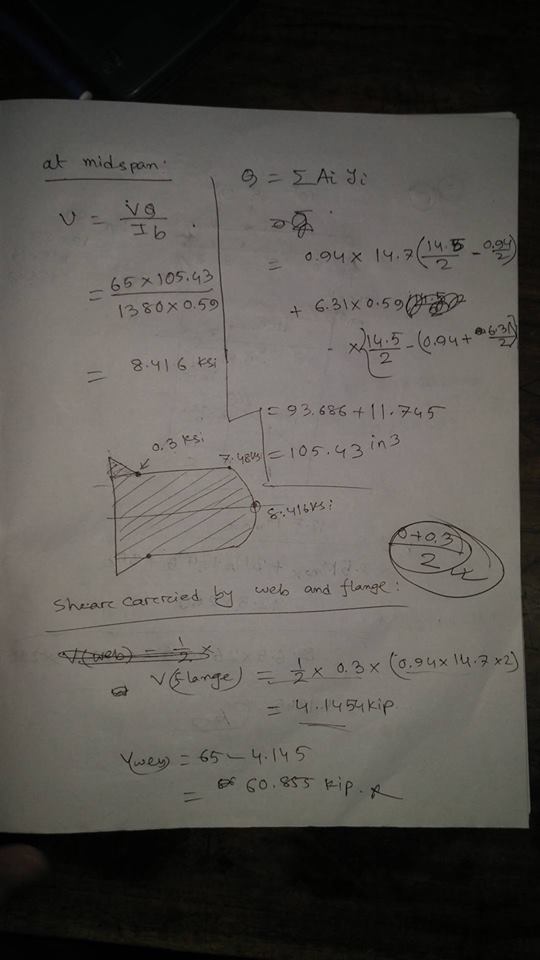 at midspan:
υ = VQ / Ib
= 65 × 105.43 / 1380 × 0.59
= 8.416 ksi
Q = Σ Ai yi
= 0.94 × 14.7 (14.5/2 - 0.94/2)
+ 6.31 × 0.59
× {14.5/2 - (0.94 + 6.31/2)}
= 93.686 + 11.745
= 105.43 in3
0.3 ksi
7.48 ksi
8.416 ksi
0+0.3 / 2
Shearc carcried by web and flange:
V(web) = 1/2 ×
V(flange) = 1/2 × 0.3 × (0.94 × 14.7 × 2)
= 4.1454 kip
Vweb = 65 - 4.145
= 60.855 kip.